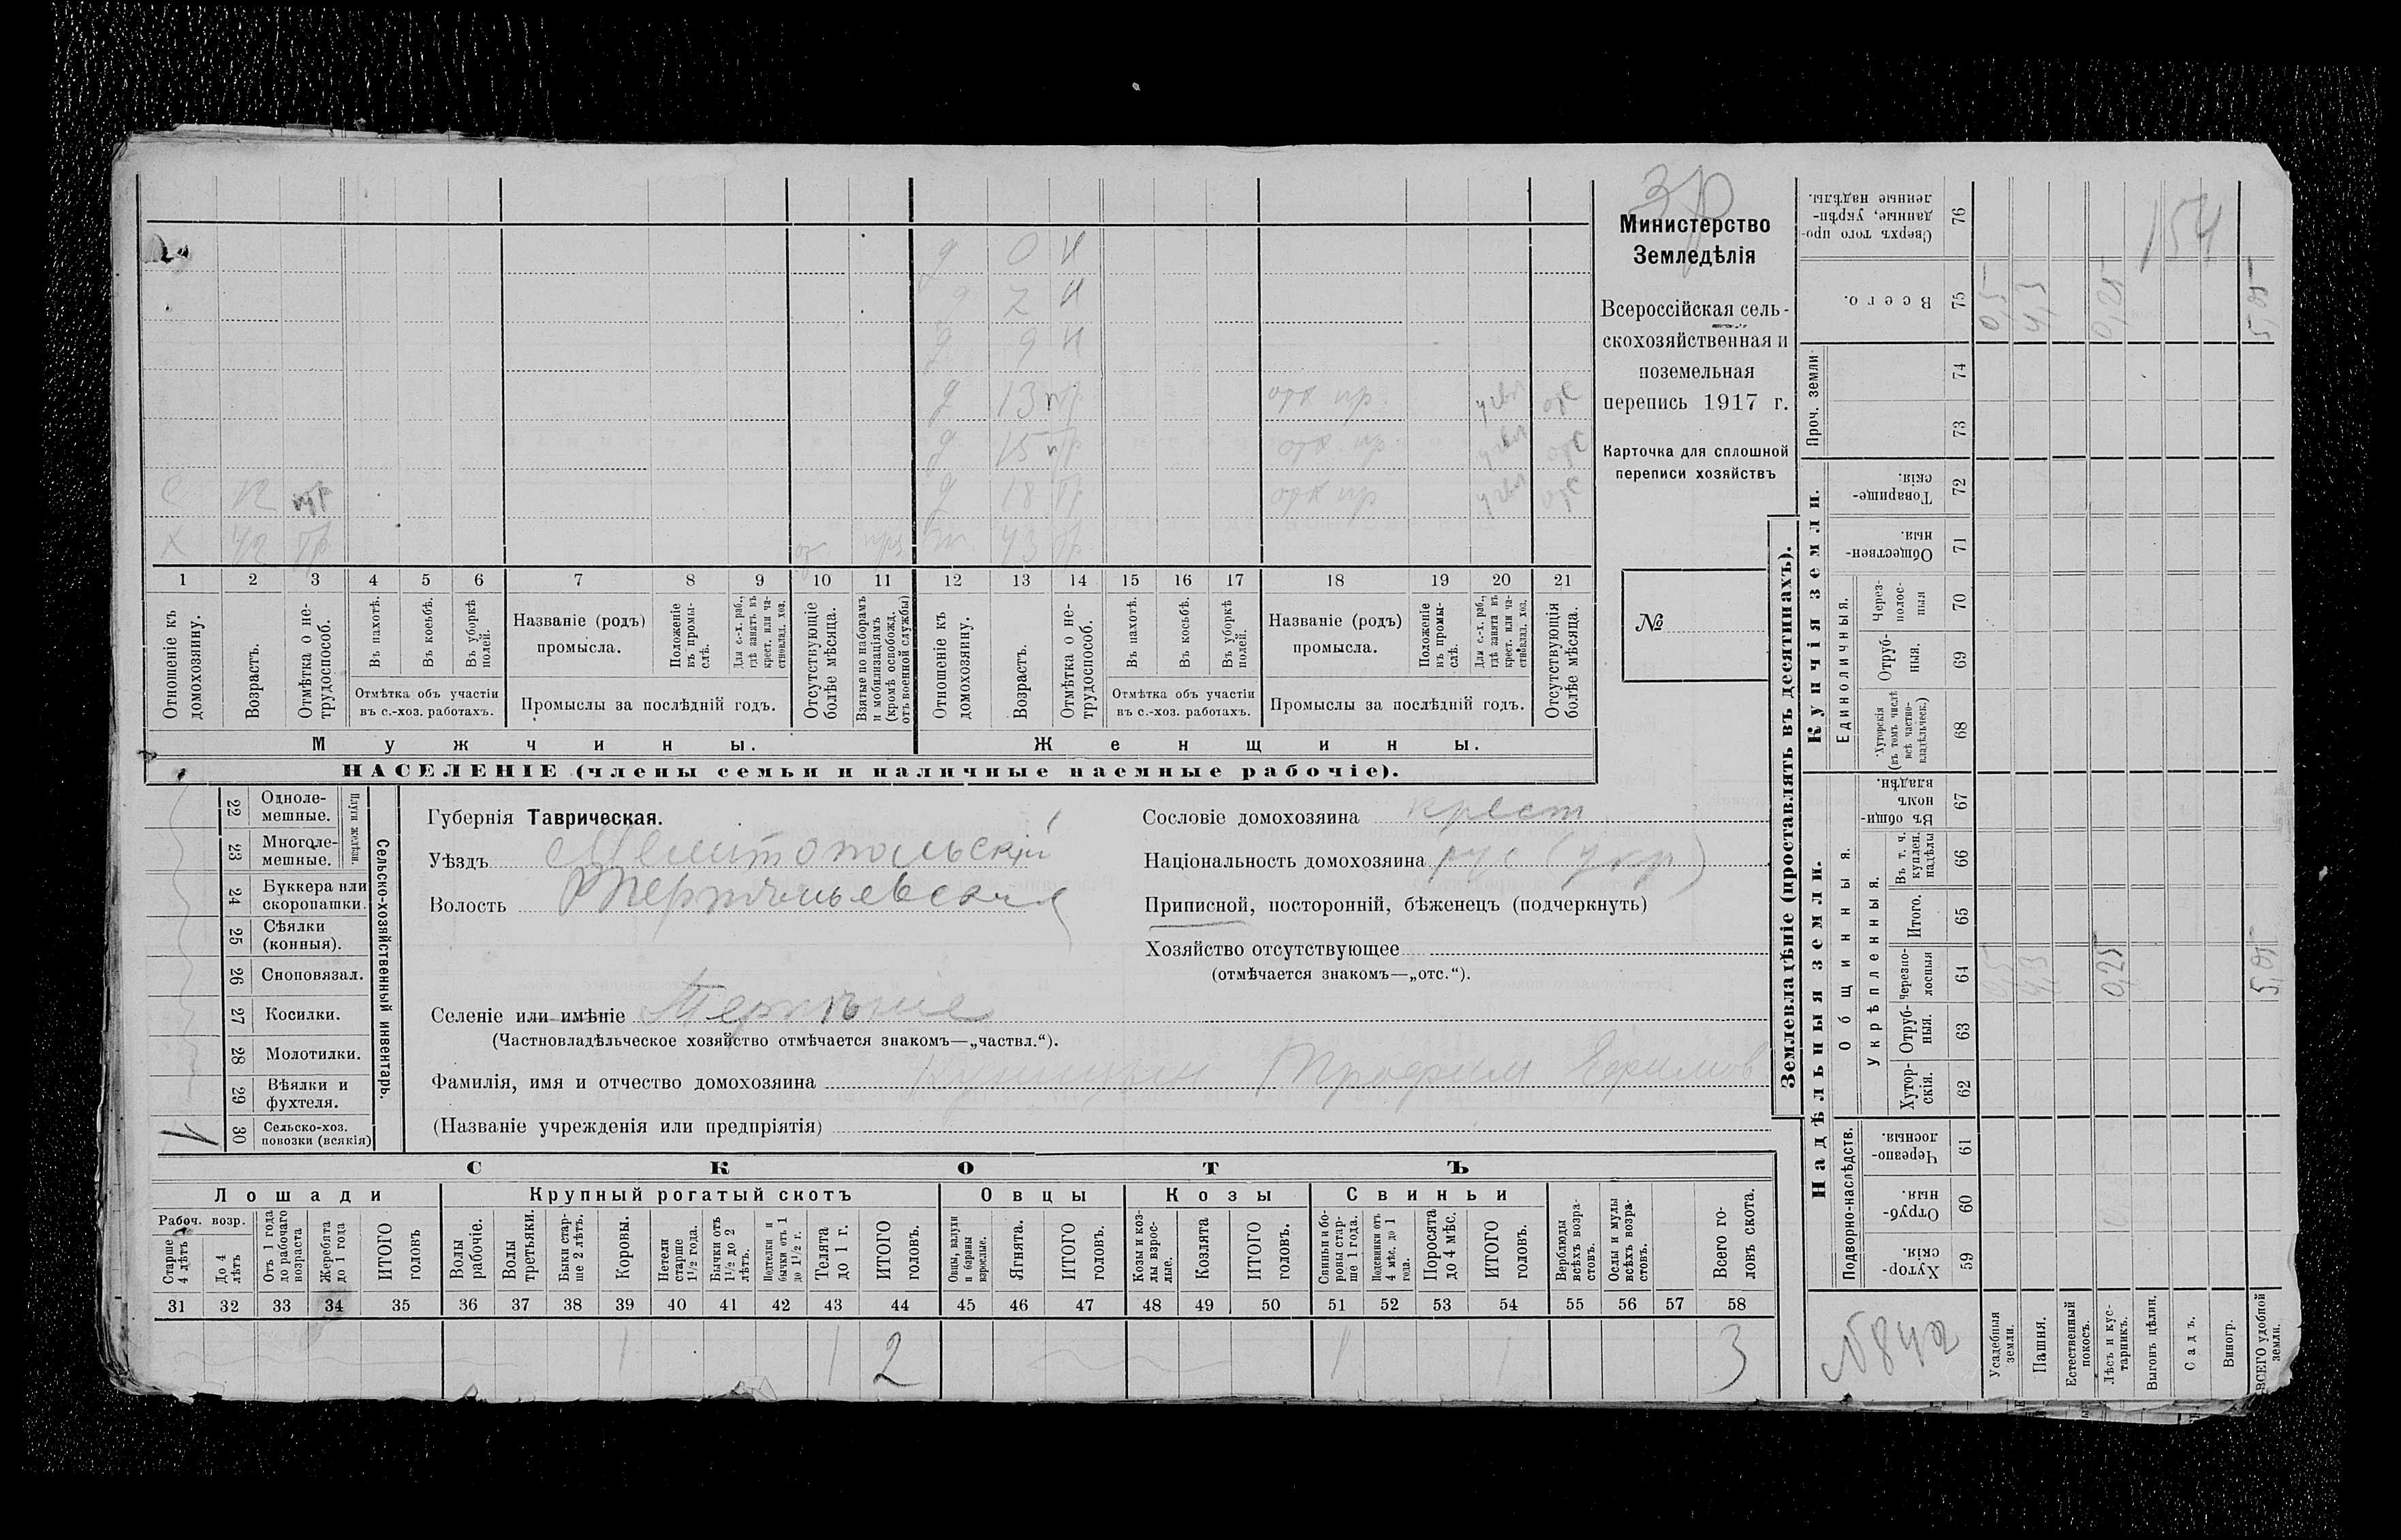 Министерство
Земледѣлія
Всероссійская сель-
скохозяйственная и
поземельная
перепись 1917 г.
Карточка для сплошной
переписи хозяйствъ
№
д 0 н
д 7 н
д 9 н
д 13 пр отх пр
д 15 пр отх пр
с 12 д 18 пр отх пр
х 42 пр 43 пр
1 2 3 4 5 6 7 8 9 10 11 12 13 14 15 16 17 18 19 20 21
Отношеніе къ домохозяину.
Возрастъ.
Отмѣтка о не-трудоспособ.
Въ пахотѣ.
Въ косьбѣ.
Въ уборкѣ полей.
Отмѣтка объ участіи
въ с.-хоз. работахъ.
Названіе (родъ)
промысла.
Положеніе въ промы-слѣ.
Для с.-х. раб., гдѣ занятъ въ крест. или ча-стновлад. хоз.
Промыслы за послѣдній годъ.
Отсутствующіе болѣе мѣсяца.
Взятые по наборамъ и мобилизаціямъ (кромѣ освобожд. отъ военной службы)
Отношеніе къ домохозяину.
Возрастъ.
Отмѣтка о не-трудоспособ.
Въ пахотѣ.
Въ косьбѣ.
Въ уборкѣ полей.
Отмѣтка объ участіи
въ с.-хоз. работахъ.
Названіе (родъ)
промысла.
Положеніе въ промы-слѣ.
Для с.-х. раб., гдѣ занята въ крест. или ча-стновлад. хоз.
Промыслы за послѣдній годъ.
Отсутствующія болѣе мѣсяца.
Мужчины. Женщины.
НАСЕЛЕНІЕ (члены семьи и наличные наемные рабочіе).
Сельско-хозяйственный инвентарь.
Плуги желѣзн.
22 Одноле-мешные.
23 Многоле-мешные.
24 Буккера или скоропашки.
25 Сѣялки (конныя).
26 Сноповязал.
27 Косилки.
28 Молотилки.
29 Вѣялки и фухтеля.
30 Сельско-хоз. повозки (всякія)
Губернія Таврическая.
Уѣздъ Мелитопольскій
Волость
Селеніе или имѣніе
(Частновладѣльческое хозяйство отмѣчается знакомъ—„частвл.“).
Фамилія, имя и отчество домохозяина Трофим Ефимов
(Названіе учрежденія или предпріятія)
Сословіе домохозяина крест
Національность домохозяина рус (укр)
Приписной, посторонній, бѣженецъ (подчеркнуть)
Хозяйство отсутствующее
(отмѣчается знакомъ—„отс.“).
СКОТЪ
Лошади Крупный рогатый скотъ Овцы Козы Свиньи
Рабоч. возр.
Старше 4 лѣтъ
До 4 лѣтъ
Отъ 1 года до рабочаго возраста
Жеребята до 1 года
ИТОГО головъ
Волы рабочіе.
Волы третьяки.
Быки стар-ше 2 лѣтъ.
Коровы.
Нетели старше 1½ года.
Бычки отъ 1½ до 2 лѣтъ.
Подтелки и бычки отъ 1 до 1½ г.
Телята до 1 г.
ИТОГО головъ.
Овцы, валухи и бараны взрослые.
Ягнята.
ИТОГО головъ.
Козы и коз-лы взрос-лые.
Козлята
ИТОГО головъ.
Свиньи и бо-ровы стар-ше 1 года.
Подсвинки отъ 4 мѣс. до 1 года.
Поросята до 4 мѣс.
ИТОГО головъ.
Верблюды всѣхъ возра-стовъ.
Ослы и мулы всѣхъ возра-стовъ.
Всего го-ловъ скота.
31 32 33 34 35 36 37 38 39 40 41 42 43 44 45 46 47 48 49 50 51 52 53 54 55 56 57 58
1 1 2 1 1 3
Землевладѣніе (проставлять въ десятинахъ).
Надѣльныя земли. Купчія земли. Проч. земли
Подворно-наслѣдств.
Общинныя.
Укрѣпленныя.
Единоличныя.
Хутор-скія. 59
Отруб-ныя. 60
Черезпо-лосныя. 61
Хутор-скія. 62
Отруб-ныя. 63
Черезпо-лосныя 64
Итого. 65
Въ т. ч. куплен. надѣлы 66
Въ общи-номъ владѣн. 67
Хуторскія (въ томъ числѣ всѣ частно-владѣльческ.) 68
Отруб-ныя. 69
Через-полос-ныя 70
Обществен-ныя. 71
Товарище-скія. 72
73
74
Всего. 75
Сверхъ того про-данные, укрѣп-ленные надѣлы. 76
№ 842
154
Усадебныя земли. 0,5
Пашня. 4,3 4,3
Естественный покосъ.
Лѣсъ и кус-тарникъ. 0,25 0,25
Выгонъ цѣлин.
Садъ.
Виногр.
ВСЕГО удобной земли. 5,05 5,05